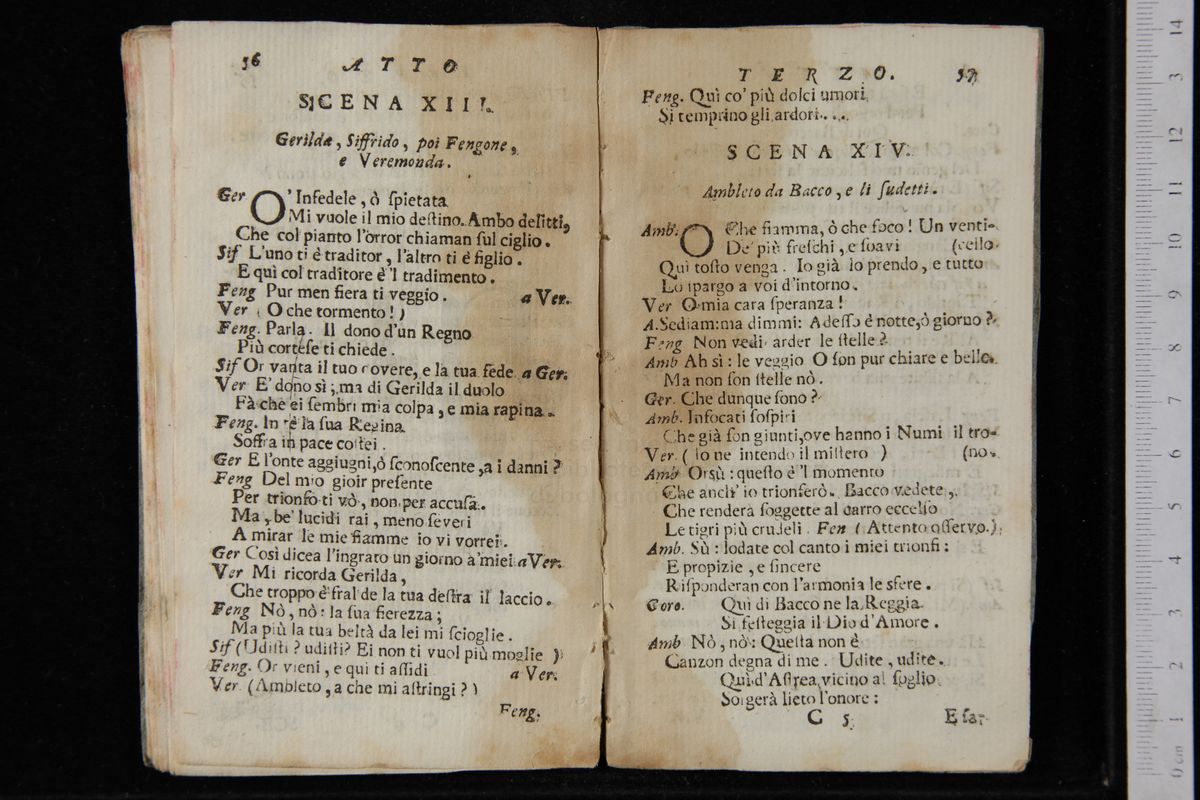 56 ATTO
SCENA XIII.
Gerilda, Siffrido, poi Fengone,
e Veremonda.
Ger O' Infedele, ò ſpietata
Mi vuole il mio deſtino. Ambo delitti,
Che col pianto l'orror chiaman ſul ciglio.
Sif L'uno ti è traditor, l'altro ti è figlio.
E quì col traditore è 'l tradimento.
Feng Pur men fiera ti veggio. a Ver.
Ver ( O che tormento! )
Feng. Parla. Il dono d'un Regno
Più corteſe ti chiede.
Sif Or vanta il tuo rovere, e la tua fede a Ger.
Ver E' dono sì; ma di Gerilda il duolo
Fà che ei ſembri mia colpa, e mia rapina.
Feng. In te la ſua Regina
Soffra in pace coſtei.
Ger E l'onte aggiugni, ò ſconoſcente, a i danni?
Feng Del mio gioir preſente
Per trionfo ti vò, non per accuſa.
Ma, be' lucidi rai, meno ſeveri
A mirar le mie fiamme io vi vorrei.
Ger Così dicea l'ingrato un giorno a'miei. a Ver.
Ver Mi ricorda Gerilda,
Che troppo è fral de la tua deſtra il laccio.
Feng Nò, nò: la ſua fierezza;
Ma più la tua beltà da lei mi ſcioglie.
Sif (Udiſti? udiſti? Ei non ti vuol più moglie )
Feng. Or vieni, e qui t'aſſidi a Ver.
Ver. (Ambleto, a che mi aſtringi? )
Feng.
TERZO. 57
Feng. Quì co' più dolci umori
Si temprino gli ardori....
SCENA XIV.
Ambleto da Bacco, e li ſudetti.
Amb. O Che fiamma, ò che foco! Un venti-
De' più freſchi, e ſoavi (cello
Quì toſto venga. Io già lo prendo, e tutto
Lo ſpargo a voi d'intorno.
Ver O mia cara ſperanza!
A. Sediam: ma dimmi: Adeſſo è notte, ò giorno?
Feng Non vedi arder le ſtelle?
Amb Ah sì: le veggio O ſon pur chiare e belle.
Ma non ſon ſtelle nò.
Ger. Che dunque ſono?
Amb. Infocati ſoſpiri
Che già ſon giunti, ove hanno i Numi il tro-
Ver. ( Io ne intendo il miſtero ) (no.
Amb Orsù: queſto è 'l momento
Che anch' io trionferò. Bacco vedete,
Che renderà ſoggette al carro eccelſo
Le tigri più crudeli. Fen ( Attento oſſervo.)
Amb. Sù: lodate col canto i miei trionfi:
E propizie, e ſincere
Riſponderan con l'armonia le sfere.
Coro. Quì di Bacco ne la Reggia
Si feſteggia il Dio d'Amore.
Amb Nò, nò: Queſta non è
Canzon degna di me. Udite, udite.
Quì d'Aſtrea vicino al ſoglio
Sorgerà lieto l'onore:
C 5 E ſar-
0 cm 1 2 3 4 5 6 7 8 9 10 11 12 13 14